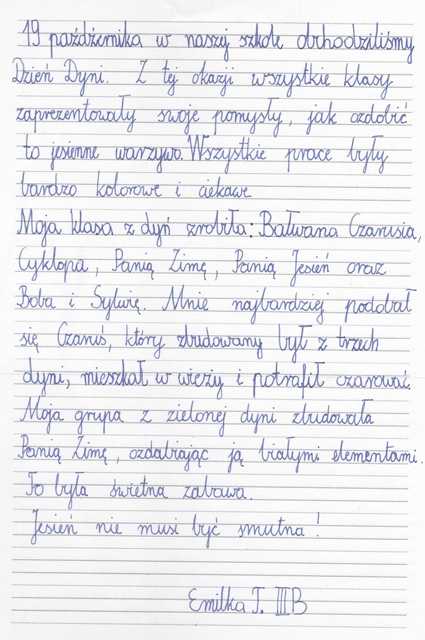 19 października w naszej szkole obchodziliśmy
Dzień Dyni. Z tej okazji wszystkie klasy
zaprezentowały swoje pomysły, jak ozdobić
to jesienne warzywo. Wszystkie prace były
bardzo kolorowe i ciekawe
Moja klasa z dyń zrobiła: Bałwana Czarusia,
Cyklopa, Panią Zimę, Panią Jesień oraz
Boba i Sylwię. Mnie najbardziej podobał
się Czaruś, który zbudowany był z trzech
dyni, mieszkał w wieży i potrafił czarować.
Moja grupa z zielonej dyni zbudowała
Panią Zimę, ozdabiając ją białymi elementami.
To była świetna zabawa.
Jesień nie musi być smutna!
Emilka T. III B